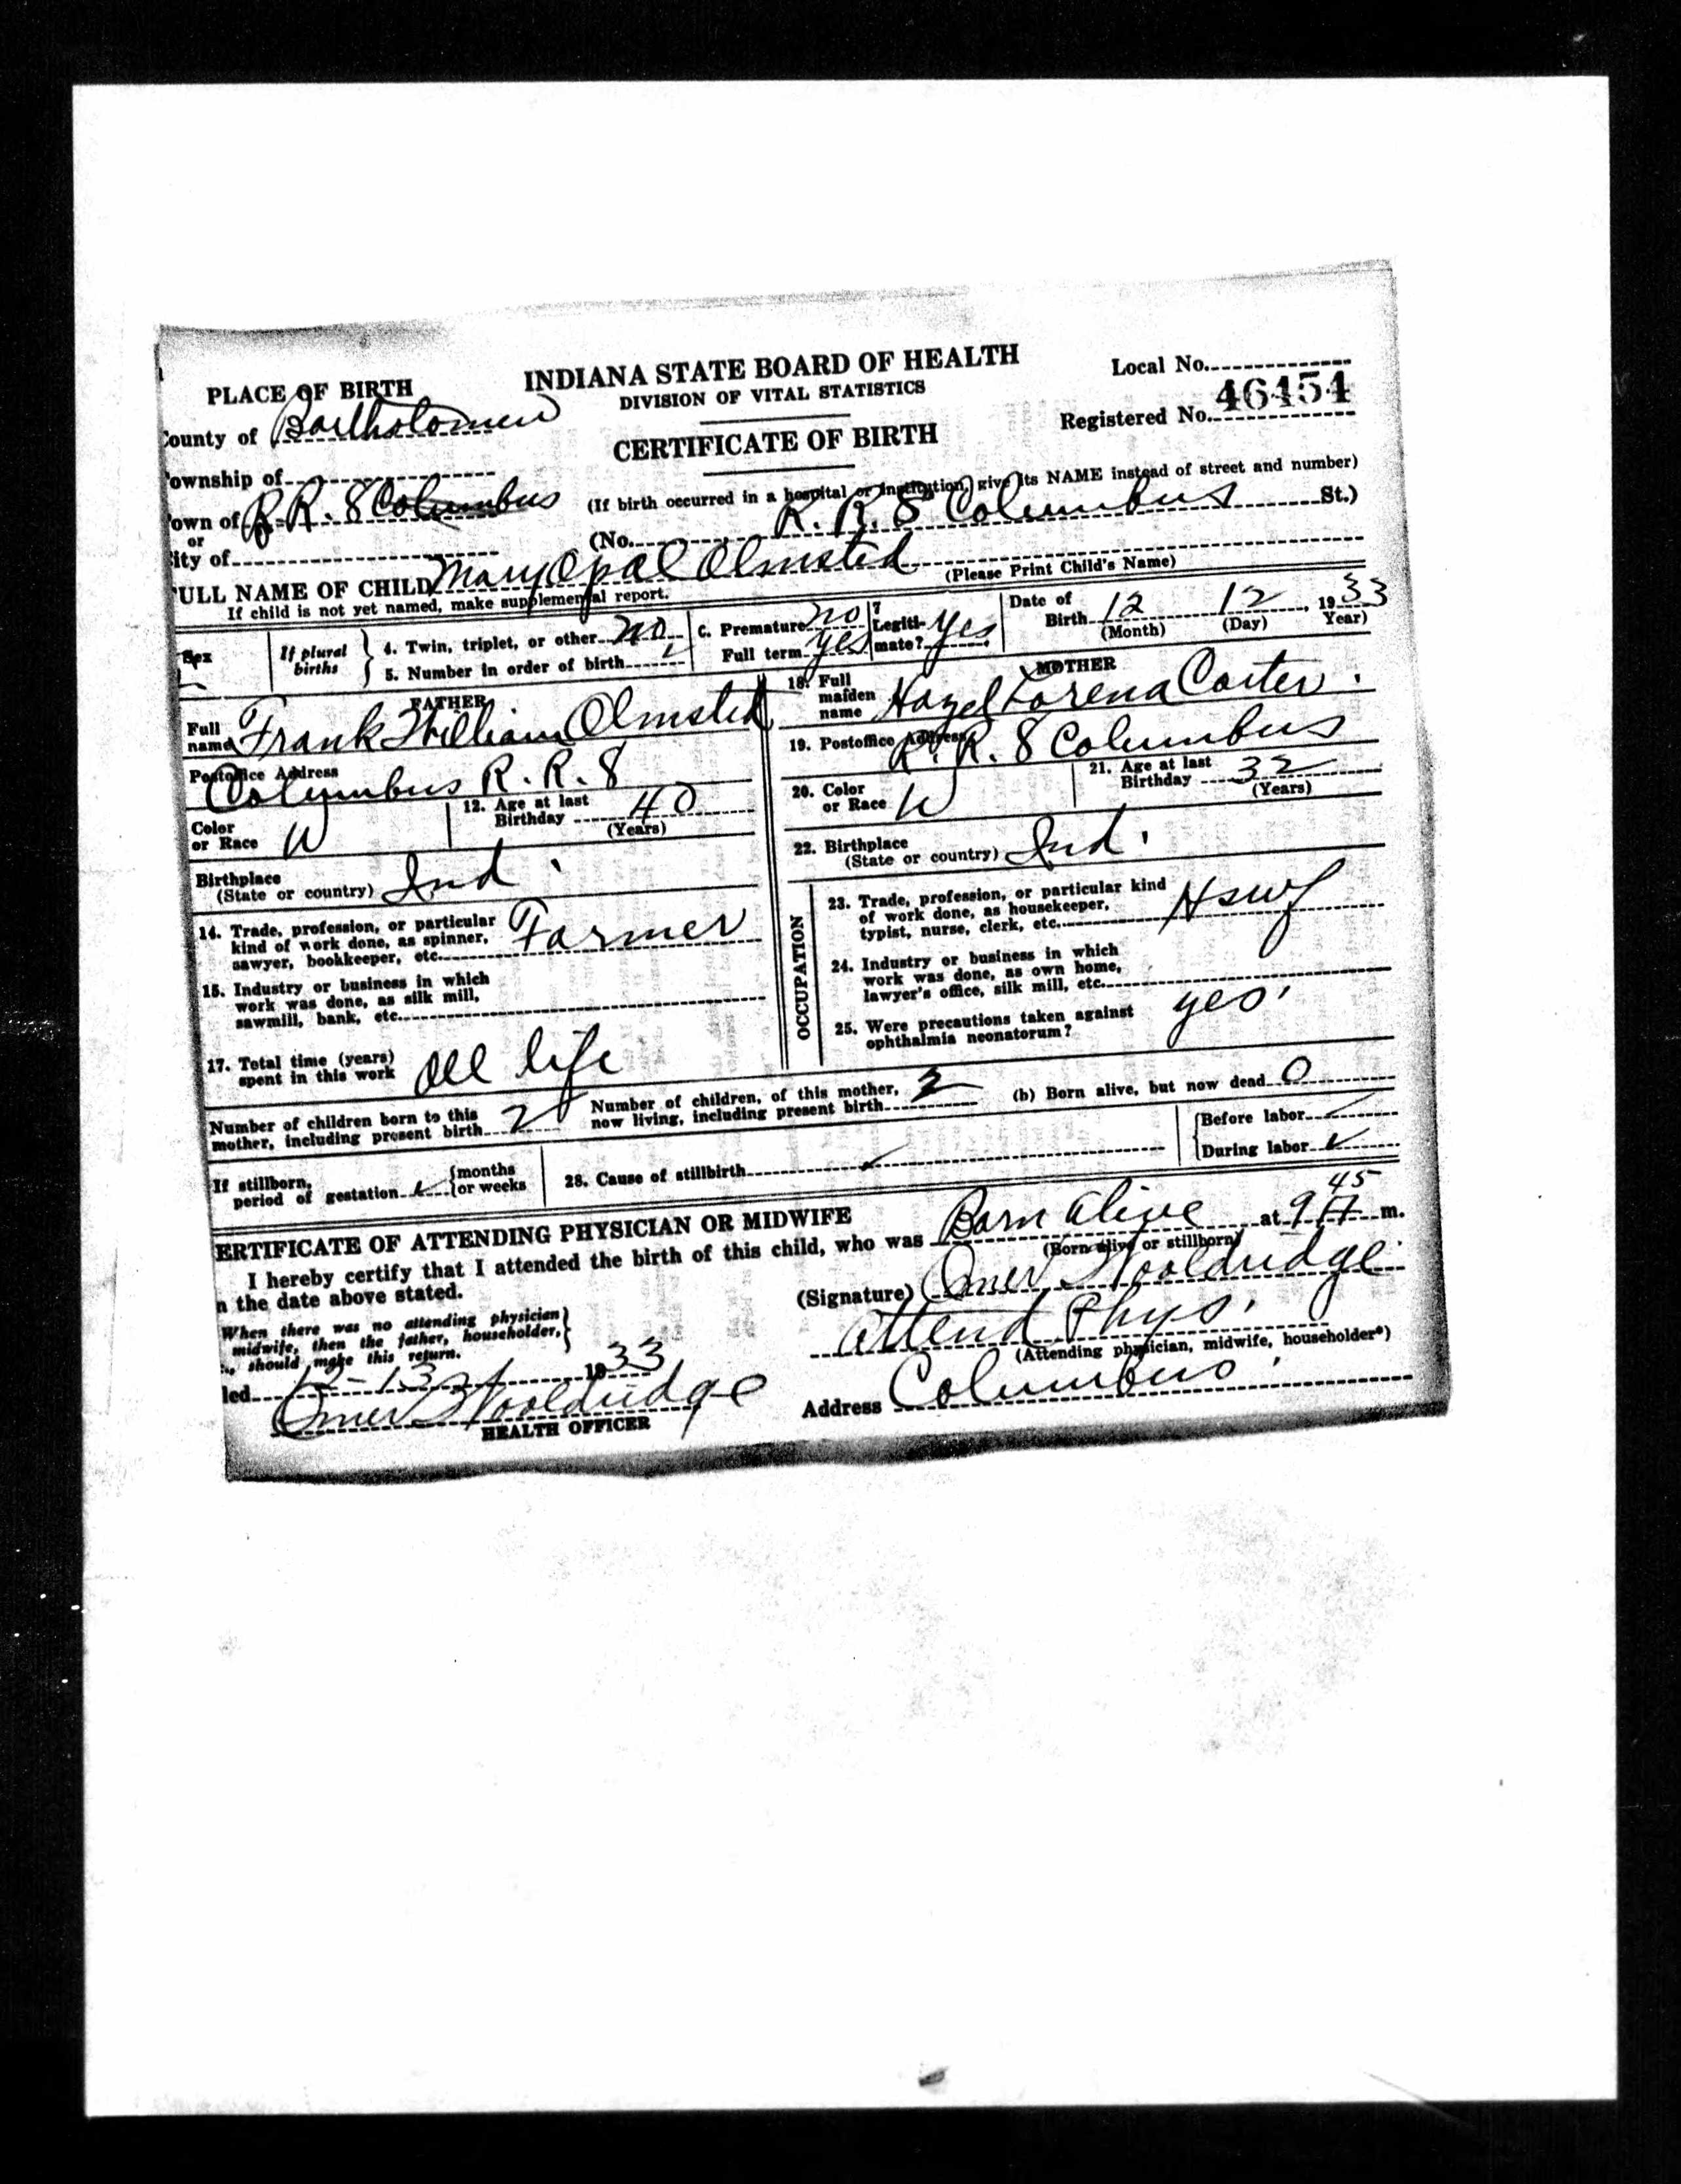 PLACE OF BIRTH
INDIANA STATE BOARD OF HEALTH
DIVISION OF VITAL STATISTICS
CERTIFICATE OF BIRTH
Local No.
Registered No. 46454
ounty of Bartholomew
ownship of
own of R.R. 8 Columbus
or
ity of
(If birth occurred in a hospital or institution, give its NAME instead of street and number)
(No. R. R. 8 Columbus St.)
ULL NAME OF CHILD Mary Opal Olmsted (Please Print Child's Name)
If child is not yet named, make supplemental report.
Sex
If plural births
4. Twin, triplet, or other no
5. Number in order of birth
C. Premature no
Full term yes
7 Legiti-
mate? yes
Date of
Birth 12 12, 1933
(Month) (Day) Year)
FATHER
Full
name Frank William Olmsted
Postoffice Address
Columbus R. R. 8
Color
or Race W
12. Age at last
Birthday 40
(Years)
Birthplace
(State or country) Ind.
14. Trade, profession, or particular
kind of work done, as spinner,
sawyer, bookkeeper, etc. Farmer
15. Industry or business in which
work was done, as silk mill,
sawmill, bank, etc.
17. Total time (years)
spent in this work all life
MOTHER
18. Full
maiden
name Hazel Lorena Carter.
19. Postoffice Address
R. R. 8 Columbus
20. Color
or Race W
21. Age at last
Birthday 32
(Years)
22. Birthplace
(State or country) Ind.
OCCUPATION
23. Trade, profession, or particular kind
of work done, as housekeeper,
typist, nurse, clerk, etc. Hswf
24. Industry or business in which
work was done, as own home,
lawyer's office, silk mill, etc.
25. Were precautions taken against
ophthalmia neonatorum? yes.
Number of children born to this
mother, including present birth 2
Number of children, of this mother,
now living, including present birth 2
(b) Born alive, but now dead 0
If stillborn,
period of gestation ✓ {months
{or weeks
28. Cause of stillbirth ✓
{Before labor ✓
{During labor ✓
ERTIFICATE OF ATTENDING PHYSICIAN OR MIDWIFE
I hereby certify that I attended the birth of this child, who was Born alive at 9 45 A m.
(Born alive or stillborn)
n the date above stated.
When there was no attending physician
midwife, then the father, householder,
., should make this return.
(Signature) Omer Wooldridge
Attend Phys.
(Attending physician, midwife, householder*)
led 12-13 1933
Omer Wooldridge
HEALTH OFFICER
Address Columbus.